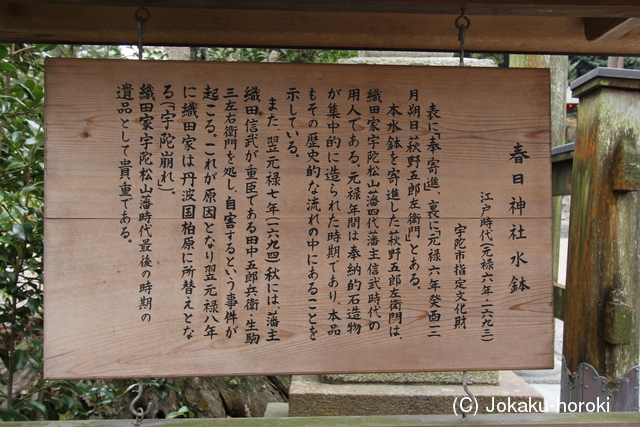 春日神社水鉢
江戸時代(元禄六年・一六九三)
宇陀市指定文化財
表に「奉寄進」、裏に「元禄六年癸酉三
月朔日萩野五郎左衛門」とある。
本水鉢を寄進した萩野五郎左衛門は、
織田家宇陀松山藩四代藩主信武時代の
用人である。元禄年間は奉納的石造物
が集中的に造られた時期であり、本品
もその歴史的な流れの中にあることを
示している。
また、翌元禄七年(一六九四)秋には、藩主
織田信武が重臣である田中五郎兵衛、生駒
三左右衛門を処し、自害するという事件が
起こる。これが原因となり翌元禄八年
に織田家は丹波国柏原に所替えとな
る(「宇陀崩れ」)。
織田家宇陀松山藩時代最後の時期の
遺品として貴重である。
(C) Jokaku-horoki